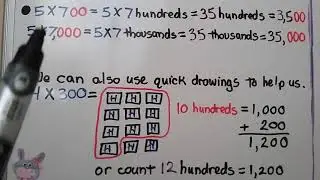 5 X 700 = 5 X 7 hundreds = 35 hundreds = 3,500
5 X 7,000 = 5 X 7 thousands = 35 thousands = 35,000
We can also use quick drawings to help us.
4 X 300 =
H H H
H H H
H H H
H H H
10 hundreds = 1,000
+ 200
1,200
or count 12 hundreds = 1,200